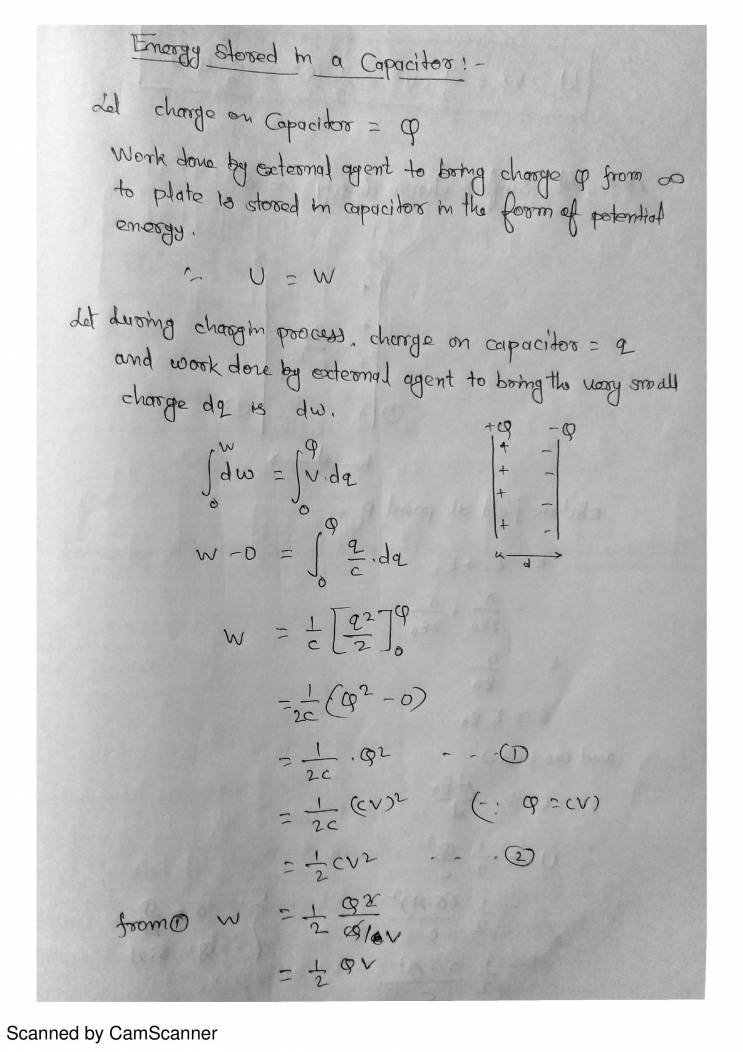 Energy Stored in a Capacitor :-
Let charge on Capacitor = Q
Work done by external agent to bring charge Q from ∞
to plate is stored in capacitor in the form of potential
energy.
∴ U = W
Let during chargin process, charge on capacitor = q
and work done by external agent to bring the very small
charge dq is dw.
+Q -Q
∫₀^W dw = ∫₀^Q V.dq
W - 0 = ∫₀^Q q/c .dq
d
W = 1/c [q²/2]₀^Q
= 1/2c (Q² - 0)
= 1/2c . Q² - - - ①
= 1/2c (CV)² (∵ Q = CV)
= 1/2 CV² - - - ②
from ① W = 1/2 Q²/Q/V
= 1/2 QV
Scanned by CamScanner